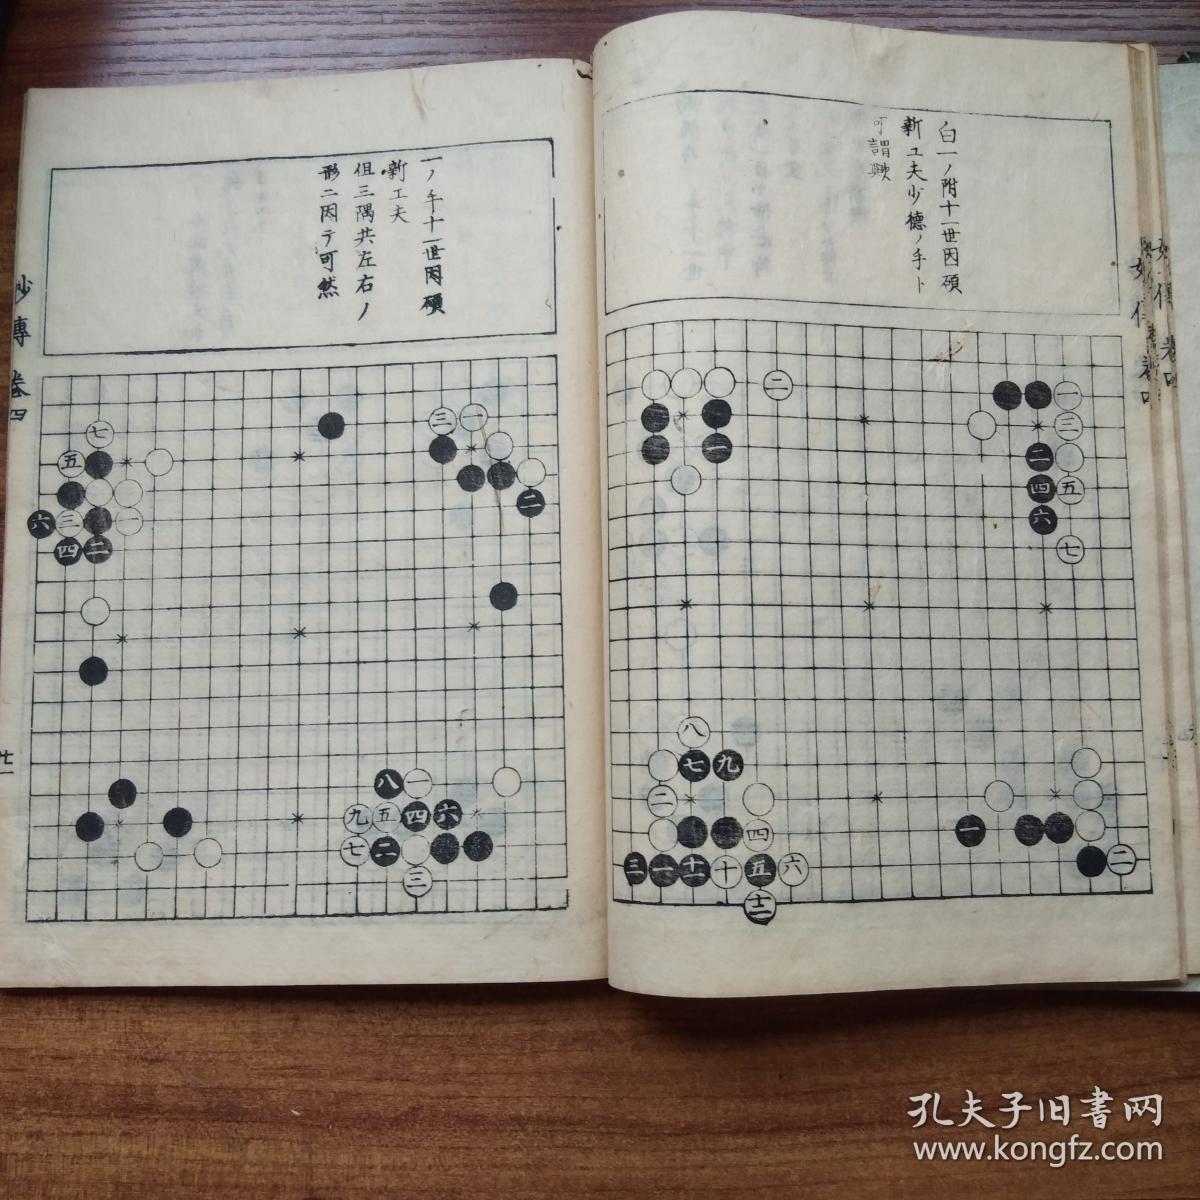 白一ノ附十一世因碩
新工夫少德ノ手ト
可謂歟
一ノ手十一世因碩
新工夫
但三隅共左右ノ
形二因テ可然
妙傳 卷四
廿一
二
一
一
三
二
四
五
六
七
八
七
九
二
四
三
十一
十
五
六
十二
一
二
七
五
六
三
一
四
二
三
一
二
八
一
九
五
四
六
七
二
三
孔夫子旧书网
www.kongfz.com